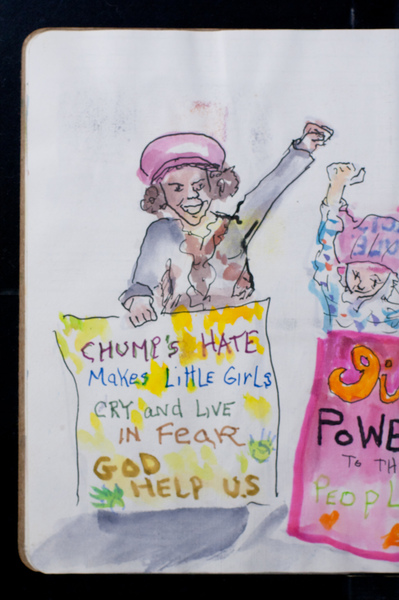 CHUMP'S HATE
Makes Little Girls
CRY and LIVE
IN FeaR
GOD
HELP U.S
POWE
TO TH
PEOPL